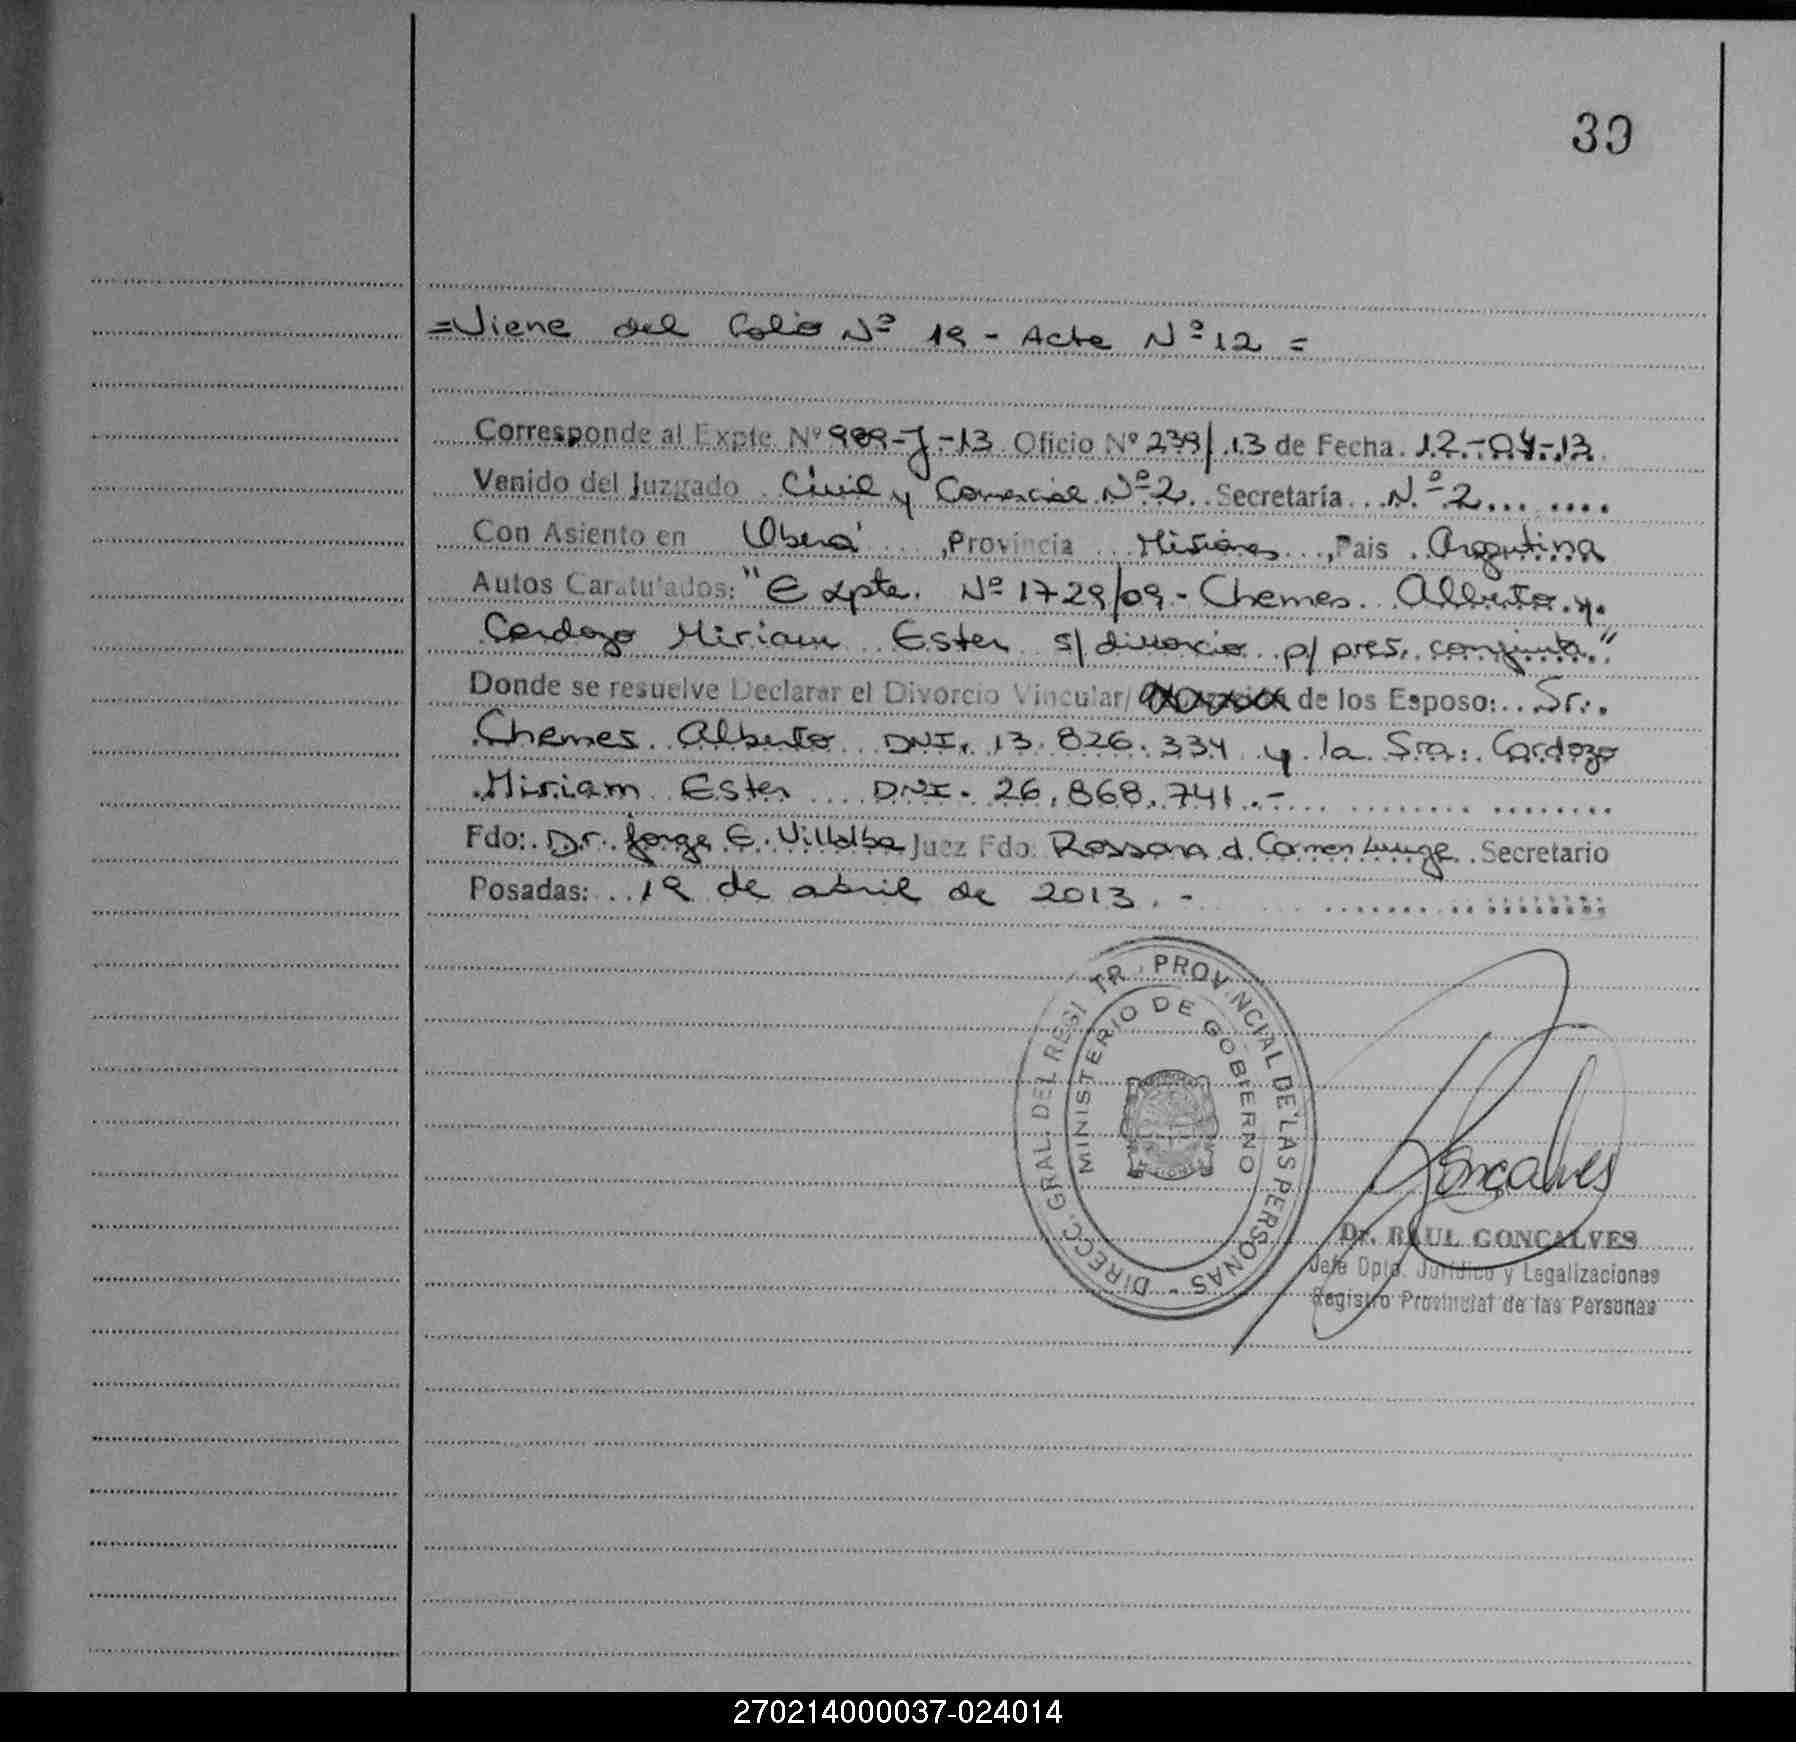 39
=Viene del Folio Nº 19 - Acta Nº 12 =
Corresponde al Expte. Nº 989-J-13 Oficio Nº 239/13 de Fecha 12-04-13
Venido del Juzgado Civil y Comercial Nº 2 Secretaría Nº 2
Con Asiento en Oberá, Provincia Misiones, Pais Argentina
Autos Caratulados: "Expte. Nº 1729/09 - Chemes Alberto y
Cardozo Miriam Ester s/ divorcio p/ pres. conjunta"
Donde se resuelve Declarar el Divorcio Vincular/ de los Esposo: Sr.
Chemes Alberto DNI. 13.826.334 y la Sra. Cardozo
Miriam Ester DNI. 26.868.741.-
Fdo: Dr. Jorge E. Villalba Juez Fdo. Rossana d. Carmen Secretario
Posadas: 19 de abril de 2013.-
DIRECC. GRAL. DEL REGISTR. PROVINCIAL DE LAS PERSONAS -
MINISTERIO DE GOBIERNO
MISIONES
Goncalves
Dr. RAUL GONCALVES
Jefe Dpto. Jurídico y Legalizaciones
Registro Provincial de las Personas
270214000037-024014